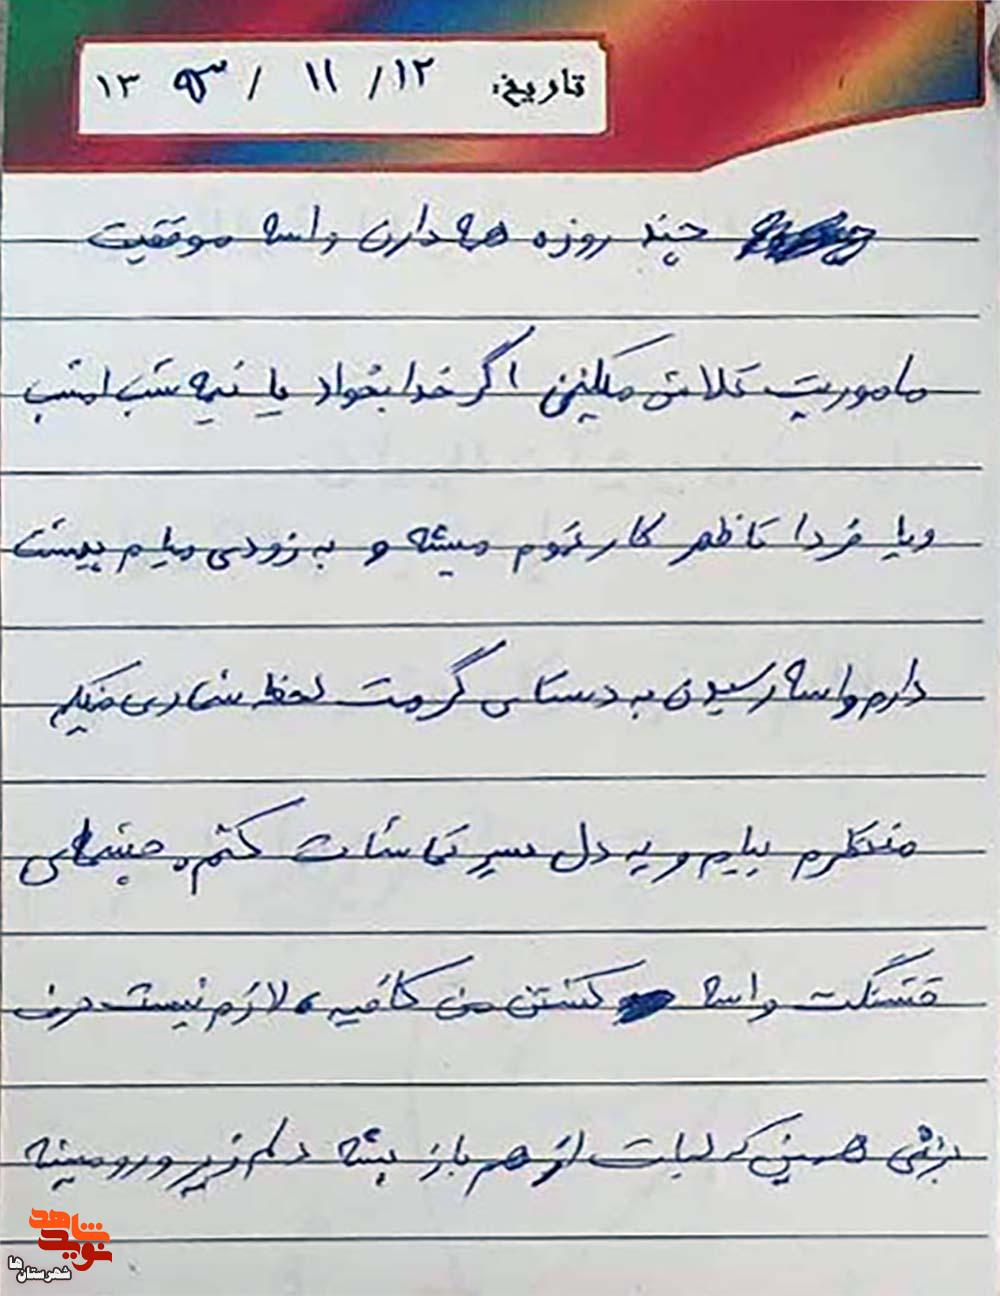 تاریخ: ۱۲ / ۱۱ / ۱۳۹۳
چند روزه همه دارن واسه موفقیت
ماموریت تلاش میکنن اگر خدا بخواد یا نیمه شب امشب
ویا فردا تا ظهر کار تموم میشه و به زودی میام پیشت
دارم واسه رسیدن به دستای گرمت لحظه شماری میکنم
منتظرم بیام و یه دل سیر تماشات کنم، چشمای
قشنگت واسه کشتن من کافیه، لازم نیست حرف
بزنی همین که لبات از هم باز بشه دلم زیر و رو میشه
نوید شاهد
شهرستان‌ها